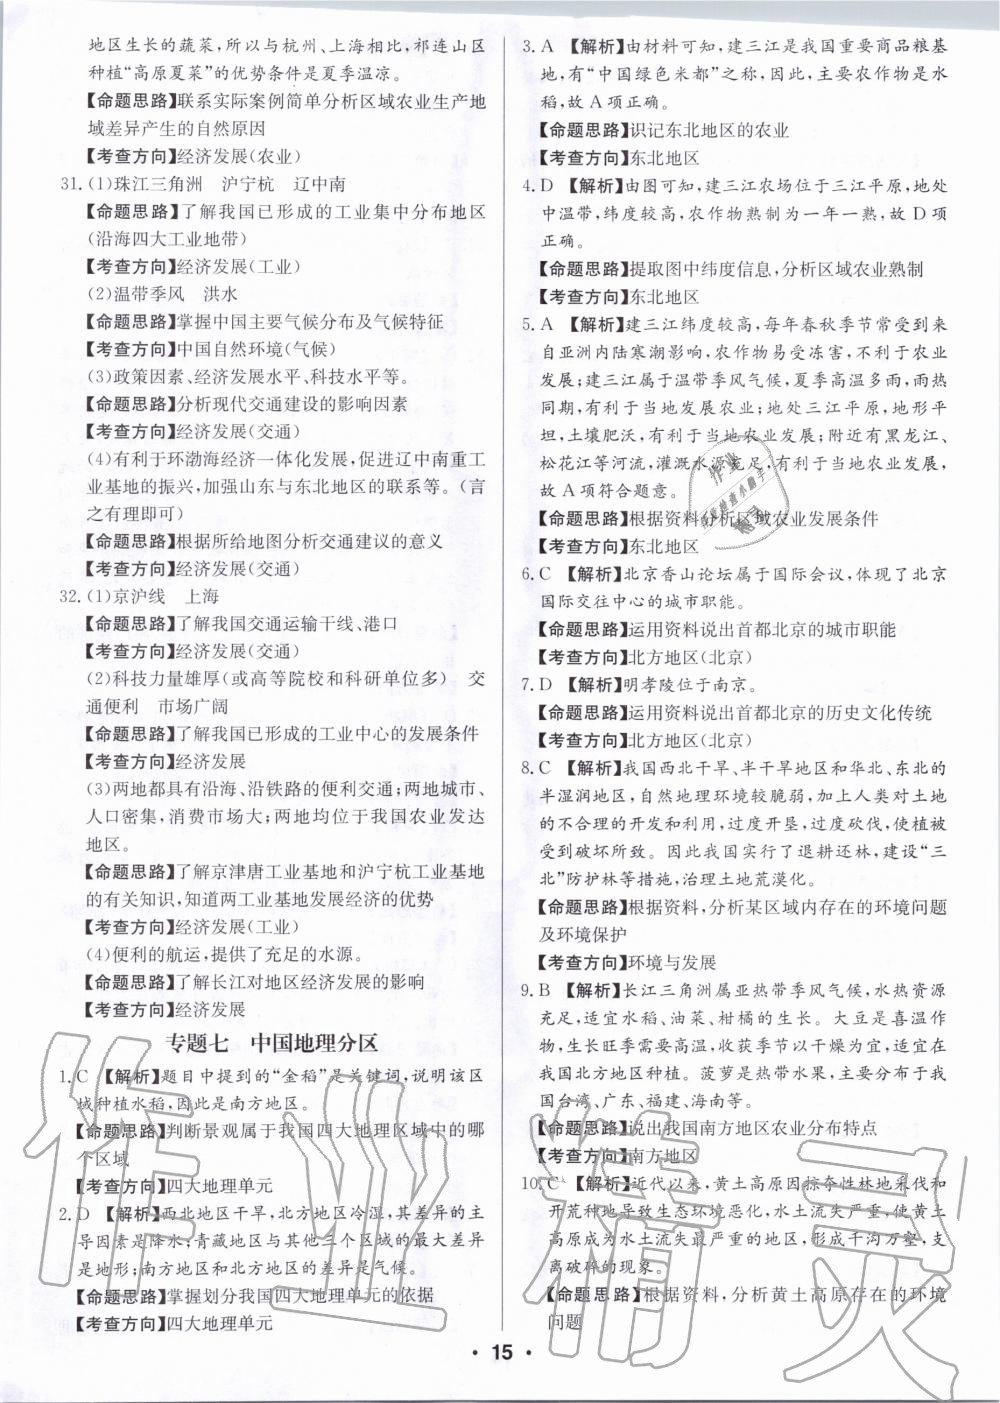 地区生长的蔬菜，所以与杭州、上海相比，祁连山区
种植“高原夏菜”的优势条件是夏季温凉。
【命题思路】联系实际案例简单分析区域农业生产地
域差异产生的自然原因
【考查方向】经济发展(农业)
31. (1)珠江三角洲　沪宁杭　辽中南
【命题思路】了解我国已形成的工业集中分布地区
(沿海四大工业地带)
【考查方向】经济发展(工业)
(2)温带季风　洪水
【命题思路】掌握中国主要气候分布及气候特征
【考查方向】中国自然环境(气候)
(3)政策因素、经济发展水平、科技水平等。
【命题思路】分析现代交通建设的影响因素
【考查方向】经济发展(交通)
(4)有利于环渤海经济一体化发展，促进辽中南重工
业基地的振兴，加强山东与东北地区的联系等。(言
之有理即可)
【命题思路】根据所给地图分析交通建议的意义
【考查方向】经济发展(交通)
32. (1)京沪线　上海
【命题思路】了解我国交通运输干线、港口
【考查方向】经济发展(交通)
(2)科技力量雄厚(或高等院校和科研单位多)　交
通便利　市场广阔
【命题思路】了解我国已形成的工业中心的发展条件
【考查方向】经济发展
(3)两地都具有沿海、沿铁路的便利交通；两地城市、
人口密集，消费市场大；两地均位于我国农业发达
地区。
【命题思路】了解京津唐工业基地和沪宁杭工业基地
的有关知识，知道两工业基地发展经济的优势
【考查方向】经济发展(工业)
(4)便利的航运，提供了充足的水源。
【命题思路】了解长江对地区经济发展的影响
【考查方向】经济发展
专题七　中国地理分区
1. C　【解析】题目中提到的“金稻”是关键词，说明该区
域种植水稻，因此是南方地区。
【命题思路】判断景观属于我国四大地理区域中的哪
个区域
【考查方向】四大地理单元
2. D　【解析】西北地区干旱，北方地区冷湿，其差异的主
导因素是降水；青藏地区与其他三个区域的最大差异
是地形；南方地区和北方地区的差异是气候。
【命题思路】掌握划分我国四大地理单元的依据
【考查方向】四大地理单元
3. A　【解析】由材料可知，建三江是我国重要商品粮基
地，有“中国绿色米都”之称，因此，主要农作物是水
稻，故 A 项正确。
【命题思路】识记东北地区的农业
【考查方向】东北地区
4. D　【解析】由图可知，建三江农场位于三江平原，地处
中温带，纬度较高，农作物熟制为一年一熟，故 D 项
正确。
【命题思路】提取图中纬度信息，分析区域农业熟制
【考查方向】东北地区
5. A　【解析】建三江纬度较高，每年春秋季节常受到来
自亚洲内陆寒潮影响，农作物易受冻害，不利于农业
发展；建三江属于温带季风气候，夏季高温多雨，雨热
同期，有利于当地发展农业；地处三江平原，地形平
坦，土壤肥沃，有利于当地农业发展；附近有黑龙江、
松花江等河流，灌溉水源充足，有利于当地农业发展，
故 A 项符合题意。
【命题思路】根据资料分析区域农业发展条件
【考查方向】东北地区
6. C　【解析】北京香山论坛属于国际会议，体现了北京
国际交往中心的城市职能。
【命题思路】运用资料说出首都北京的城市职能
【考查方向】北方地区(北京)
7. D　【解析】明孝陵位于南京。
【命题思路】运用资料说出首都北京的历史文化传统
【考查方向】北方地区(北京)
8. C　【解析】我国西北干旱、半干旱地区和华北、东北的
半湿润地区，自然地理环境较脆弱，加上人类对土地
的不合理的开发和利用，过度开垦，过度砍伐，使植被
受到破坏所致。因此我国实行了退耕还林，建设“三
北”防护林等措施，治理土地荒漠化。
【命题思路】根据资料，分析某区域内存在的环境问题
及环境保护
【考查方向】环境与发展
9. B　【解析】长江三角洲属亚热带季风气候，水热资源
充足，适宜水稻、油菜、柑橘的生长。大豆是喜温作
物，生长旺季需要高温，收获季节以干燥为宜，适宜在
我国北方地区种植。菠萝是热带水果，主要分布于我
国台湾、广东、福建、海南等。
【命题思路】说出我国南方地区农业分布特点
【考查方向】南方地区
10. C　【解析】近代以来，黄土高原因掠夺性林地采伐和
开荒种地导致生态环境恶化，水土流失严重，使黄土
高原成为水土流失最严重的地区，形成千沟万壑，支
离破碎的现象。
【命题思路】根据资料，分析黄土高原存在的环境
问题
· 15 ·
作业精灵